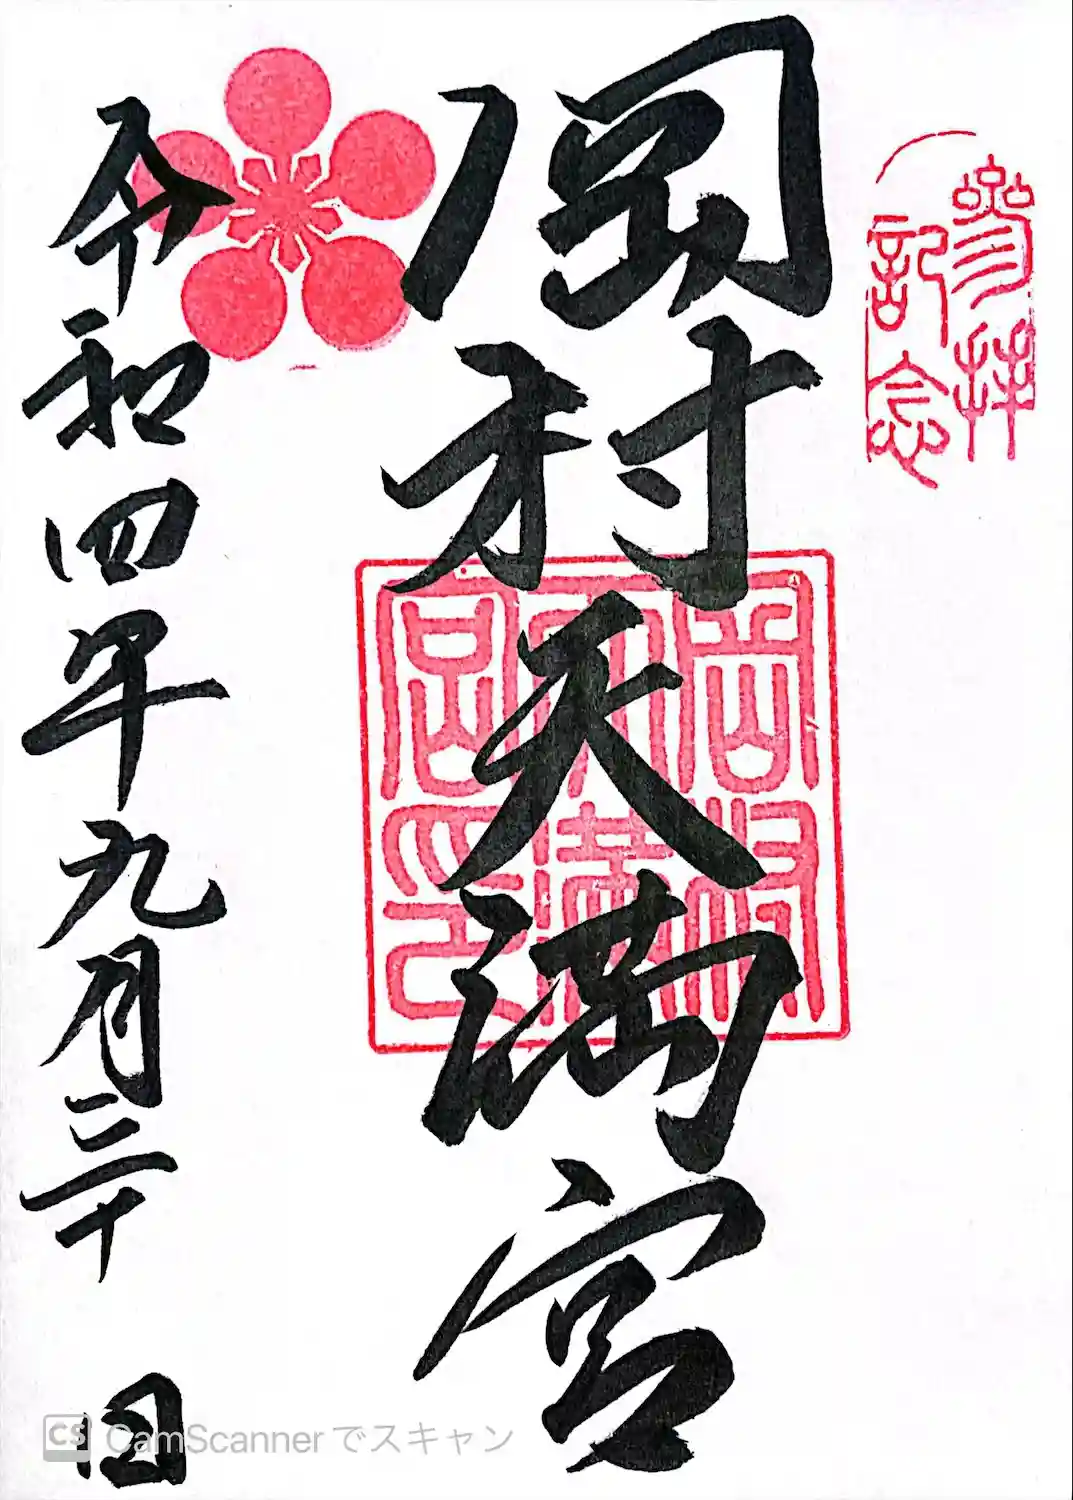 参拝
記念
岡村天満宮
岡村
天満
宮印
令和四年九月三十日
CS CamScannerでスキャン